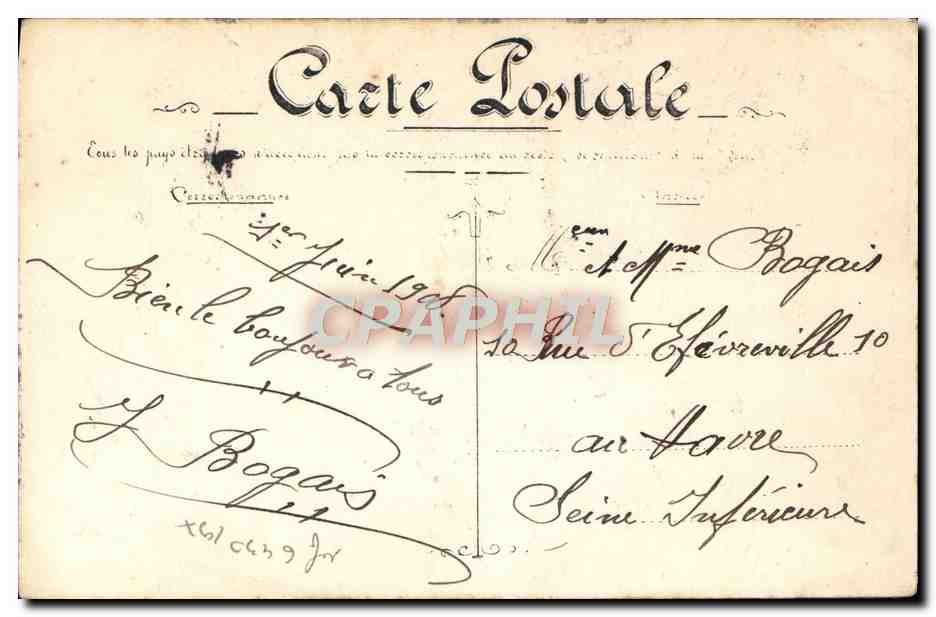 Carte Postale
Tous les pays
Correspondance
1er Juin 190
Bien le bonjour a tous
J Bogais
Mr et Mme Bogais
10 Rue d'Efévreville 10
au Havre
Seine Inférieure
CPAPHIL